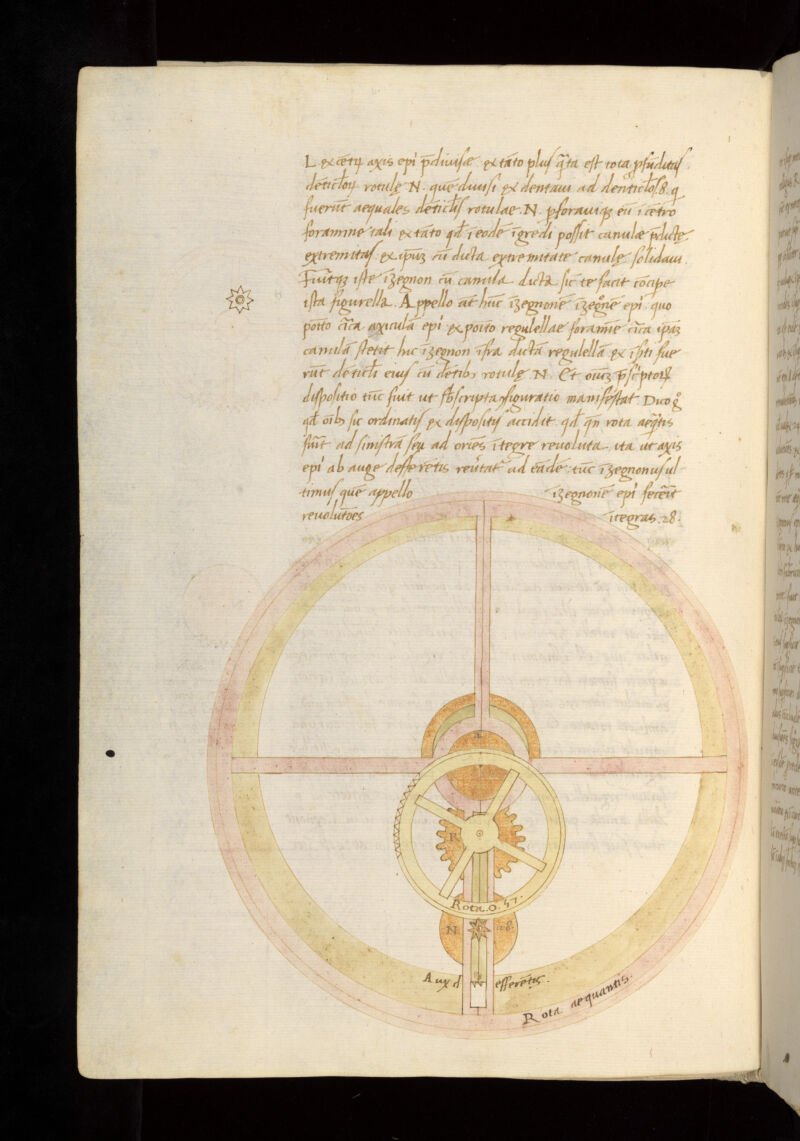 L. ex cētrꝭ axis epi p̄diuisæ ex tāto plus q̄ta est tota pfūditas
dēticlorꝝ rotule N. quē diuisi ex dentaui ad denticlos .8. q
fuerūt aequales dēticlis rotulae .N. pforauiqꝫ eū ī cētro
foramine tali ex tāto qd̄ ī eodē īgredi possit canulæ p̄dictę
extremitas. ex ipūꝫ cū dicta extremitate canulę solidaui.
Fuitqꝫ iste iꝫegnon cū canula dictā sic te facit cōcipe
ista figurella. Appello at̄ hūc iꝫegnonē iꝫegnonē epi quo
posito circa axiculā epi ex posito regulellae foramīe circa ipāꝫ
canulā stetit hic iꝫegnon īfra dictā regulellā ex isti fue
rūt dēticli eius cū dētibꝰ rotulę .N. Et oīuꝫ p̄scriptorꝝ
dispositio tūc fuit ut sbscripta figuratio manifestat. Dico gͦ
qd̄ oībꝰ sic ordinatis ex dispositis accidit qd̄ qn̄ rota aeq̄tis
fuit ad sinistrā seu ad oriēs ītegre reuoluta ita ut axis
epi ab auge defferētis reūtat ad eādē tūc iꝫegnonus ul
timus quē appello iꝫegnonē epi fecerit
reuolutōes itegras .28.
R
Rota .O. 57.
N
Aux d efferētis.
Rota aequantis.